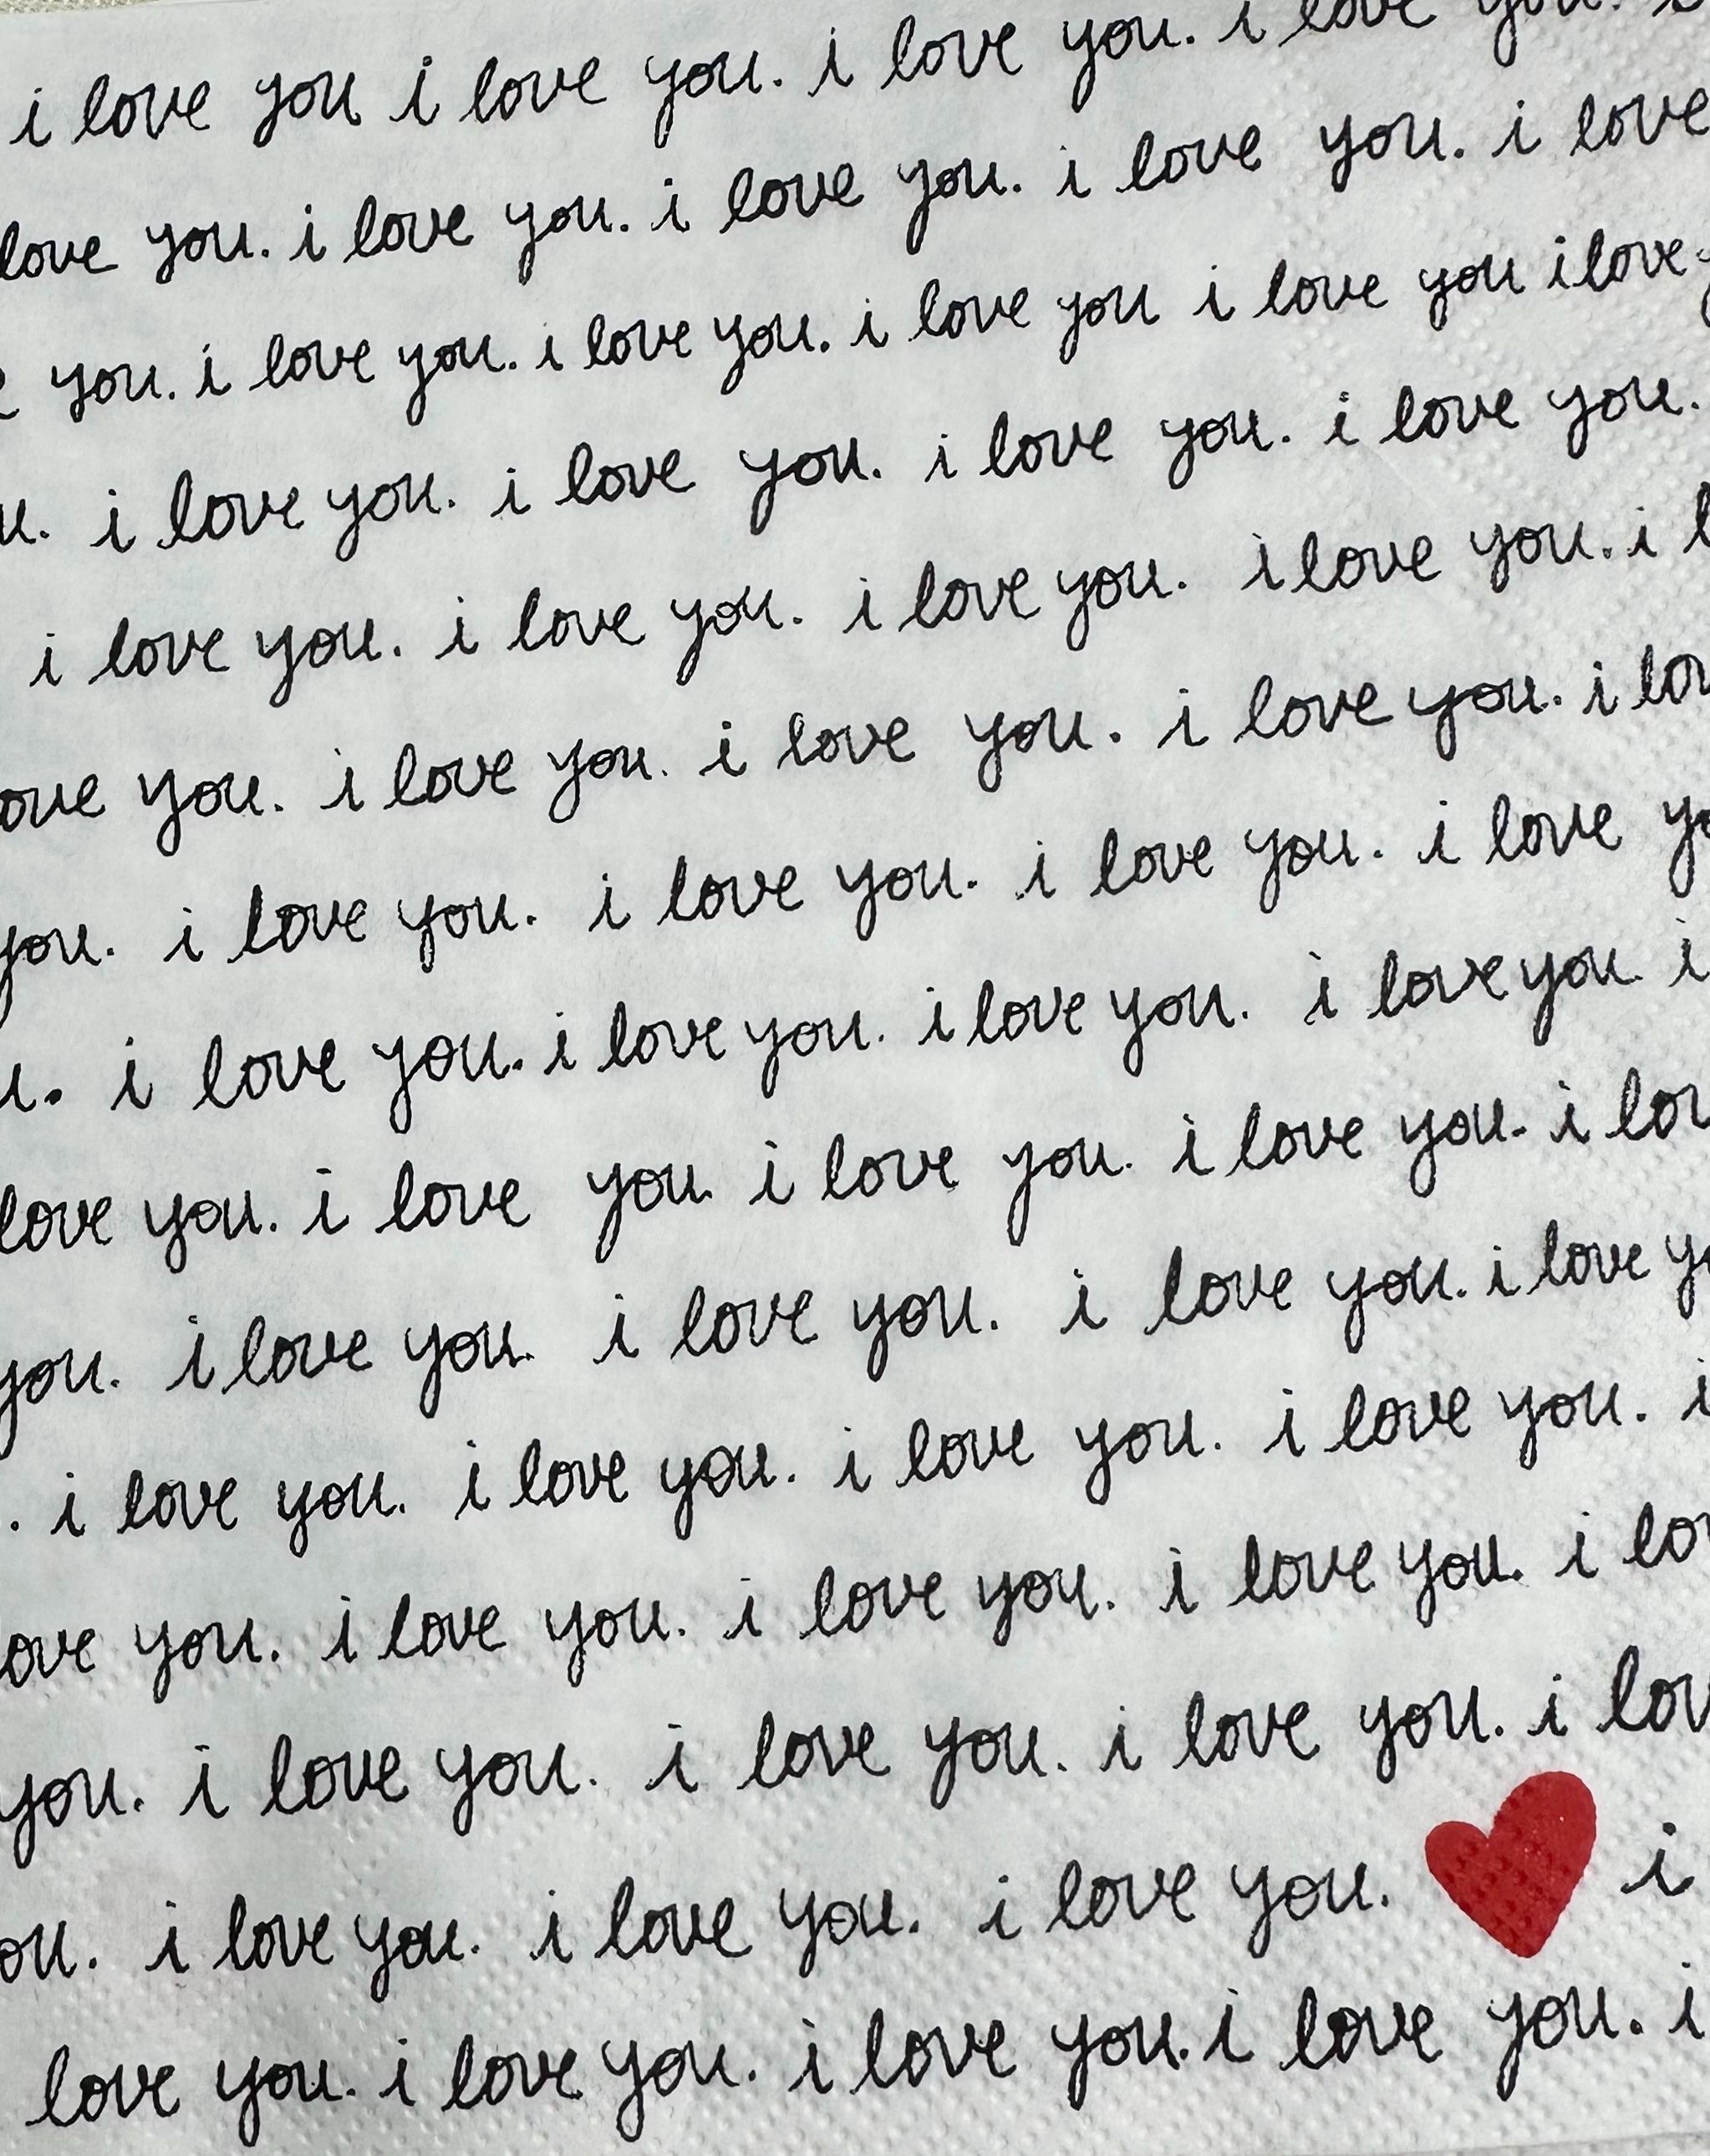 i love you i love you. i love you. i love you.
love you. i love you. i love you. i love you. i love
you. i love you. i love you. i love you i love you i love
i love you. i love you. i love you. i love you.
i love you. i love you. i love you. i love you. i
you. i love you. i love you. i love you. i
you. i love you. i love you. i love you. i love
i love you. i love you. i love you. i love you. i
love you. i love you. i love you. i love you. i
you. i love you. i love you. i love you. i love
. i love you. i love you. i love you. i love you. i
you. i love you. i love you. i love you. i
you. i love you. i love you. i love you. i
i love you. i love you. i love you. i
love you. i love you. i love you. i love you. i